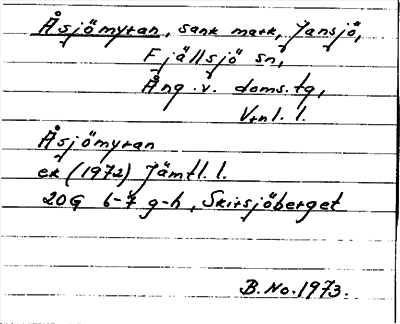 Åsjömyran, sank mark, Jansjö,
Fjällsjö sn,
Ång. v. doms. tg,
Vrnl. l.
Åsjömyran
ek (1972) Jämtl. l.
20G 6-7 g-h, Skirsjöberget
B. No. 1973.